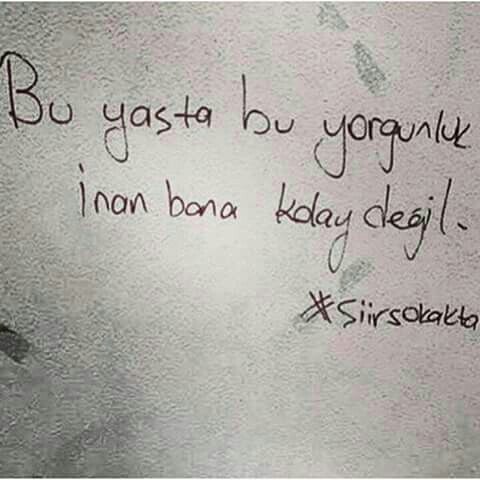 Bu yasta bu yorgunluk
inan bana kolay değil.
#siirsokakta